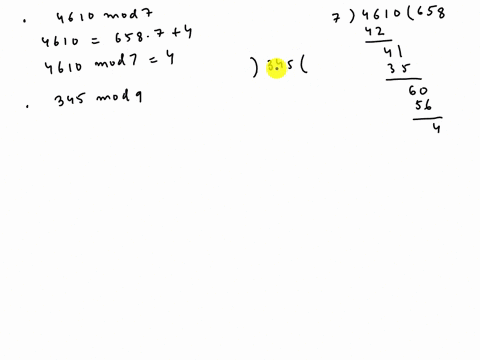 . 4610 mod 7
4610 = 658.7 + 4
4610 mod 7 = 4
. 345 mod 9
) 345 (
7 ) 4610 ( 658
42
41
35
60
56
4